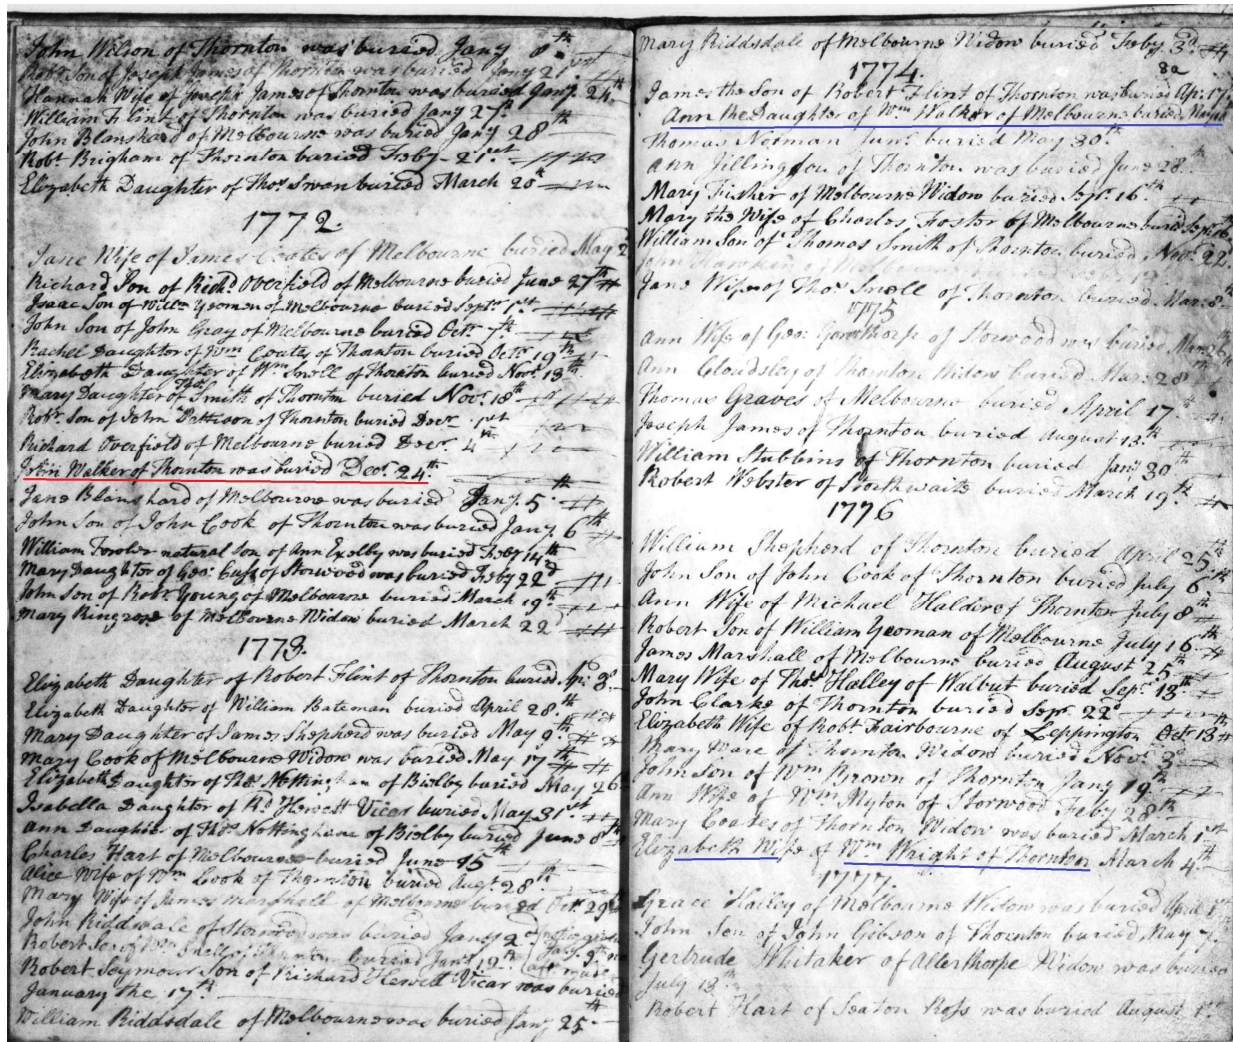 John Wilson of Thornton was buried Jany 8th
Robt. Son of Joseph James of Thornton was buried Jany 21st
Hannah Wife of Joseph James of Thornton was buried Jany. 24th
William Flint of Thornton was buried Jany 27th
John Blanshard of Melbourne was buried Jany 28th
Robt. Brigham of Thornton buried Feby. 21st
Elizabeth Daughter of Thos. Swan buried March 20th
1772.
Jane Wife of James Coates of Melbourne buried May 2
Richard Son of Richd Overfield of Melbourne buried June 27th
Isaac Son of Willm Yeomen of Melbourne buried Septr. 1st
John Son of John Gray of Melbourne buried Octr. 7th
Rachel Daughter of Wm Coates of Thornton buried Octr. 19th
Elizabeth Daughter of Wm Snell of Thornton buried Novr. 13th
Mary Daughter of Thos. Smith of Thornton buried Novr. 18th
Robt. Son of John Pattison of Thornton buried Decr. 1st
Richard Overfield of Melbourne buried Decr. 4th
John Walker of Thornton was buried Decr. 24th
Jane Blanshard of Melbourne was buried Jany. 5th
John Son of John Cook of Thornton was buried Jany. 6th
William Fowler natural Son of Ann Exelby was buried Feby 14th
Mary Daughter of Geo: Cuff of Storwood was buried Feby 22d
John Son of Robt. Young of Melbourne buried March 19th
Mary Ringrose of Melbourne Widow buried March 22d
1773.
Elizabeth Daughter of Robert Flint of Thornton buried Apr: 3d
Elizabeth Daughter of William Bateman buried April 28th
Mary Daughter of James Shepherd was buried May 9th
Mary Cook of Melbourne Widow was buried May 17th
Elizabeth Daughter of Thos. Nottingham of Bielby buried May 26
Isabella Daughter of Rd. Hewett Vicar buried May 31st
Ann Daughter of Thos Nottinghame of Bielby buried June 8th
Charles Hart of Melbourne buried June 15th
Alice Wife of Wm Cook of Thornton buried Augt. 28th
Mary Wife of James Marshall of Melbourne buried Octr. 29th
John Riddsdale of Storwood was buried Jany 2d
Robert Son of Wm Snell of Thornton buried Jany 12th
Robert Seymour Son of Richard Hewett Vicar was buried
January the 17th
William Riddsdale of Melbourne was buried Jany 25th
Mary Riddsdale of Melbourne Widow buried Feby. 3d
1774.
82
James the Son of Robert Flint of Thornton was buried Apr: 17
Ann the Daughter of Wm Walker of Melbourne buried May
Thomas Norman Junr. buried May 30th
Ann Jillington of Thornton was buried June 28th
Mary Fisher of Melbourne Widow buried Sept. 16th
Mary the Wife of Charles Foster of Melbourne buried Sept.
William Son of Thomas Smith of Thornton buried Novr. 22
John Hawkins of Melbourne
Jane Wife of Thos Snell of Thornton buried Mar: 8th
1775
Ann Wife of Geo: Gowthorpe of Storwood was buried
Ann Cloudsley of Thornton Widow buried Mar: 28th
Thomas Graves of Melbourne buried April 17th
Joseph James of Thornton buried August 13th
William Stubbins of Thornton buried Jany 30th
Robert Webster of Storthwaite buried March 19th
1776
William Shepherd of Thornton buried April 25th
John Son of John Cook of Thornton buried July 6th
Ann Wife of Michael Halder of Thornton July 8th
Robert Son of William Yeoman of Melbourne July 16th
James Marshall of Melbourne buried August 25th
Mary Wife of Thos. Halley of Walbut buried Sepr. 13th
John Clarke of Thornton buried Sepr. 22d
Elizabeth Wife of Robt. Fairbourne of Leppington Octr 13
Mary Ware of Thornton Widow buried Novr. 3d
John Son of Wm Brown of Thornton Jany 19th
Ann Wife of Wm Myton of Storwood Feby 28th
Mary Coates of Thornton Widow was buried March 1st
Elizabeth Wife of Wm Wright of Thornton March 4th
1777.
Grace Halley of Melbourne Widow was buried April 1st
John Son of John Gibson of Thornton buried May 7
Gertrude Whitaker of Allerthorpe Widow was buried
July 13th
Robert Hart of Seaton Ross was buried August 1st